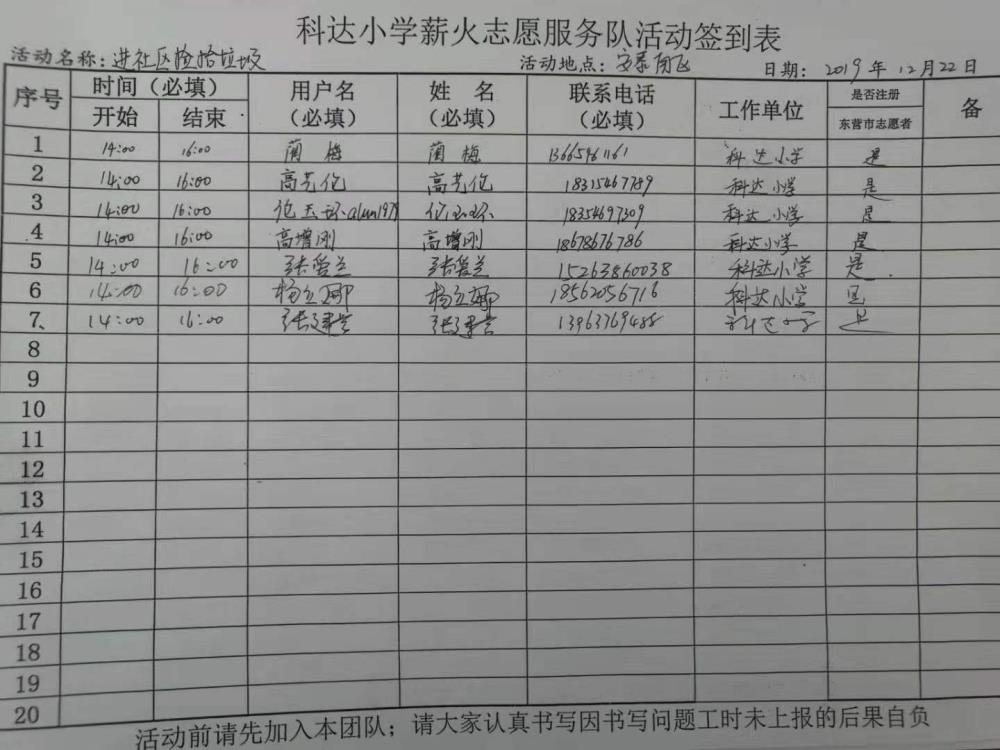 科达小学薪火志愿服务队活动签到表
活动名称：进社区捡拾垃圾 活动地点：安泰南 日期：2019年12月22日
序号 时间（必填） 用户名（必填） 姓名（必填） 联系电话（必填） 工作单位 是否注册东营市志愿者 备
开始 结束
1 14:00 16:00 蔺梅 蔺梅 科达小学 是
2 14:00 16:00 高艺伦 高艺伦 18315467789 科达小学 是
3 14:00 16:00 18354697309 科达小学 是
4 14:00 16:00 高增刚 高增刚 18678676786 科达小学 是
5 14:00 16:00 张爱兰 张爱兰 15263860038 科达小学 是.
6 14:00 16:00 杨立娜 杨立娜 18562056716 科达小学 是
7、 14:00 16:00 张建芸 张建芸 13963769488 科达小学 是
8
9
10
11
12
13
14
15
16
17
18
19
20
活动前请先加入本团队；请大家认真书写因书写问题工时未上报的后果自负